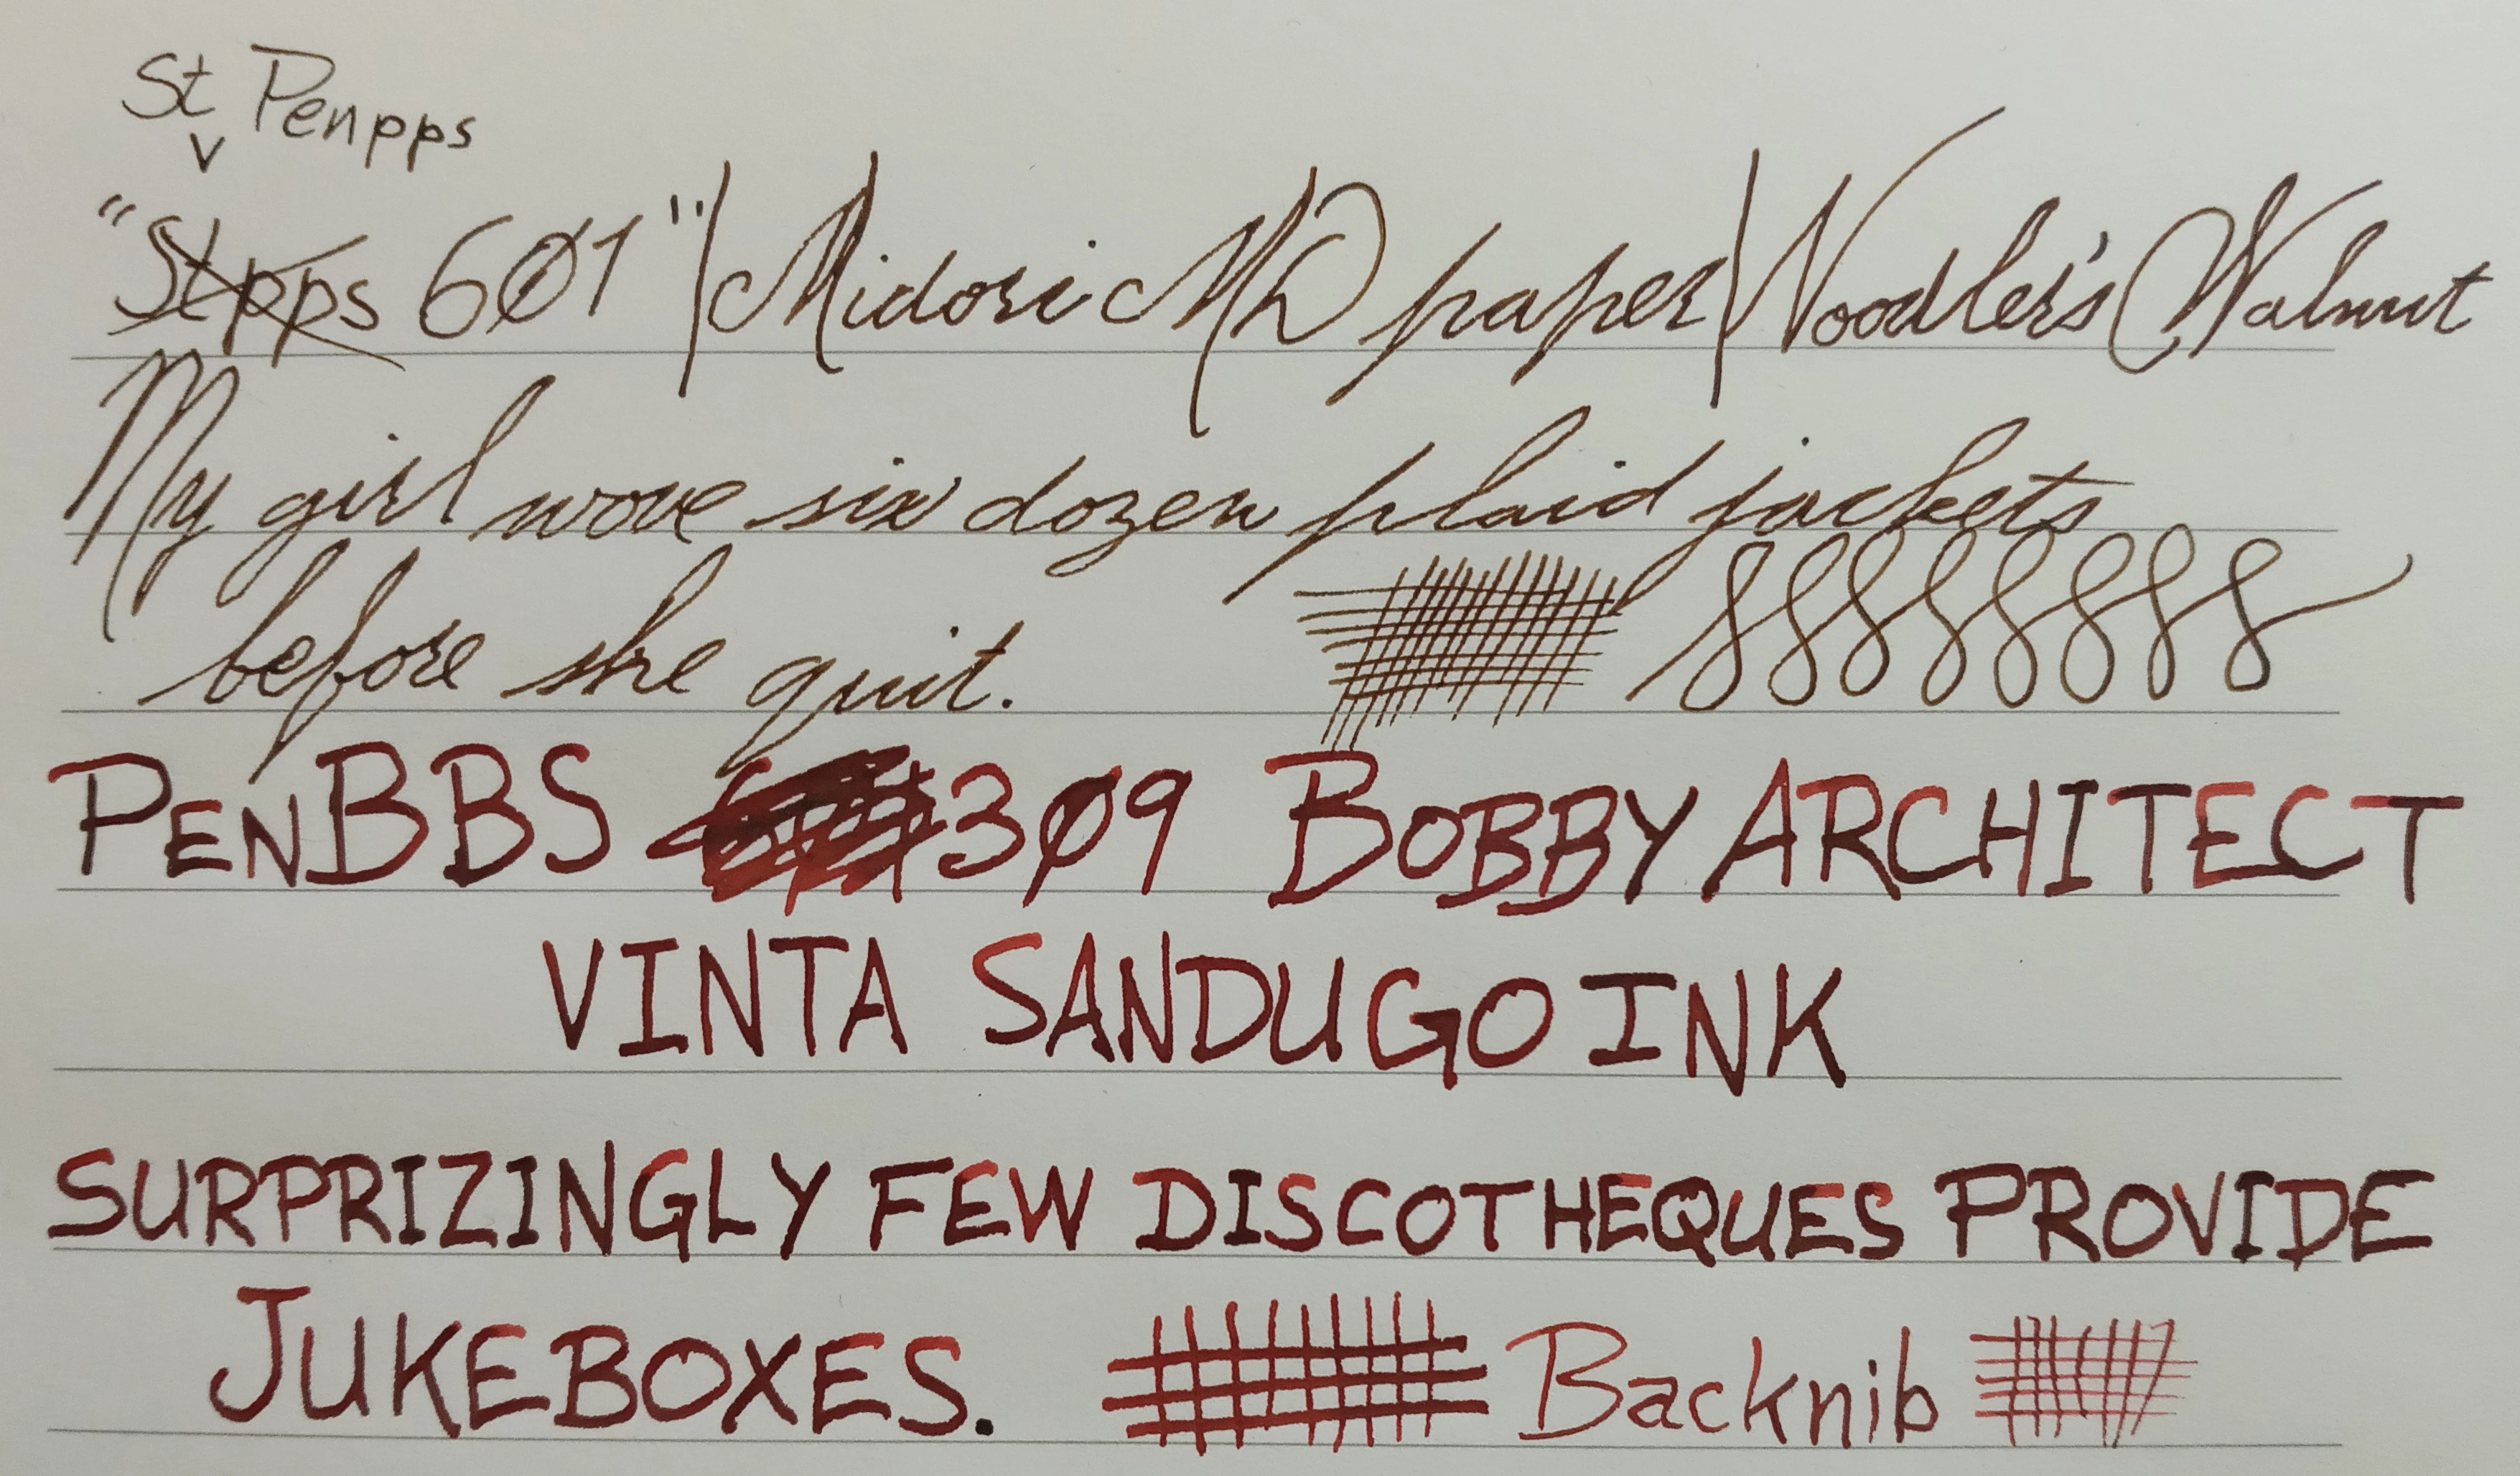 St Penpps
v
"Stpps 601" / Midori MD paper / Noodler's Walnut
My girl wove six dozen plaid jackets
before she quit.
PENBBS 309 BOBBY ARCHITECT
VINTA SANDUGO INK
SURPRIZINGLY FEW DISCOTHEQUES PROVIDE
JUKEBOXES. Backnib